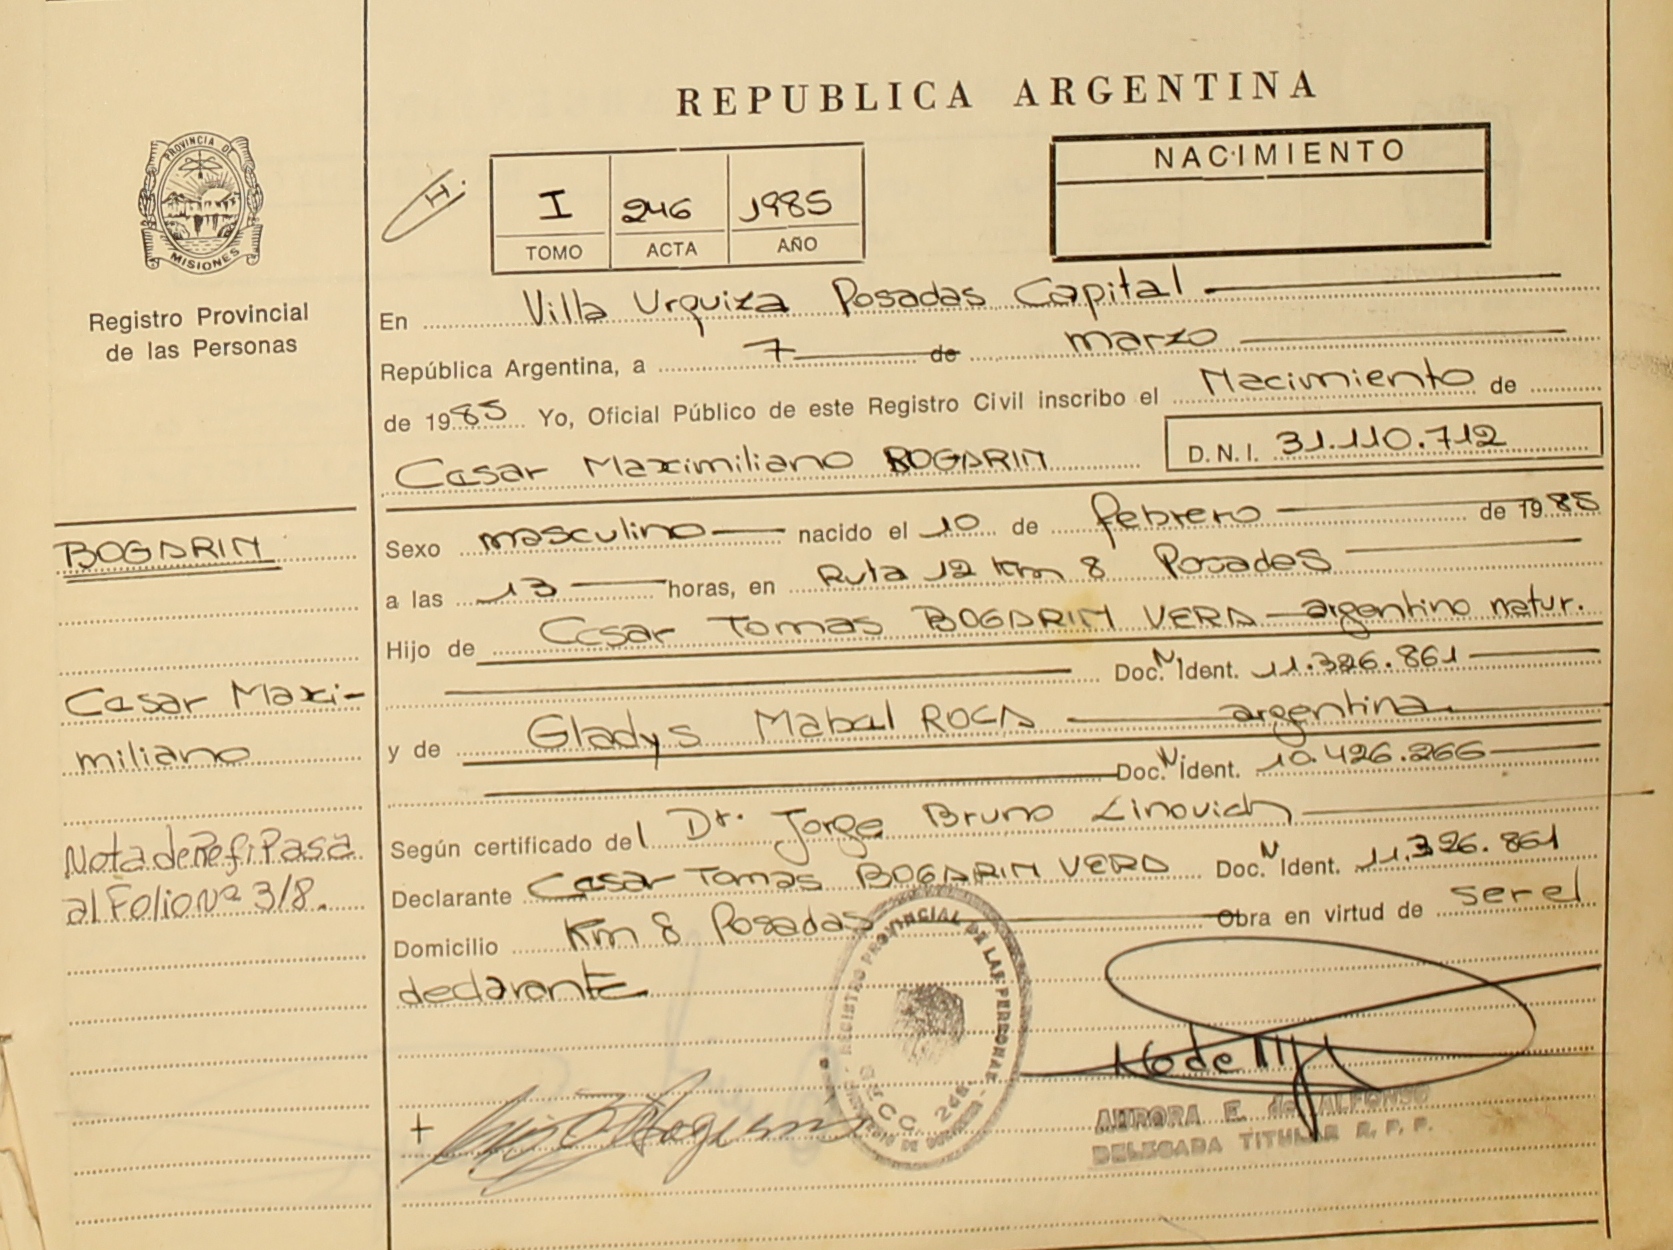 REPUBLICA ARGENTINA
PROVINCIA DE
MISIONES
Registro Provincial
de las Personas
H.
I 246 1985
TOMO ACTA AÑO
NACIMIENTO
En Villa Urquiza Posadas Capital
República Argentina, a 7 de marzo
de 1985 Yo, Oficial Público de este Registro Civil inscribo el Nacimiento de
Cesar Maximiliano BOGARIN D.N.I. 31.110.712
BOGARIN
Sexo masculino nacido el 10 de febrero de 1985
a las 13 horas, en Ruta 12 Km 8 Posadas
Hijo de Cesar Tomas BOGARIN VERA argentino natur.
Doc. N Ident. 11.326.861
Cesar Maxi-
miliano
y de Gladys Mabel ROCA argentina
Doc. N Ident. 10.426.266
Según certificado del Dr. Jorge Bruno Linovich
Nota de Ref: Pasa
al Folio Nº 318.
Declarante Cesar Tomas BOGARIN VERA Doc. N Ident. 11.326.861
Domicilio Km 8 Posadas Obra en virtud de ser el
declarante
REGISTRO PROVINCIAL DE LAS PERSONAS
AURORA E. de ALFONSO
DELEGADA TITULAR R. P. P.